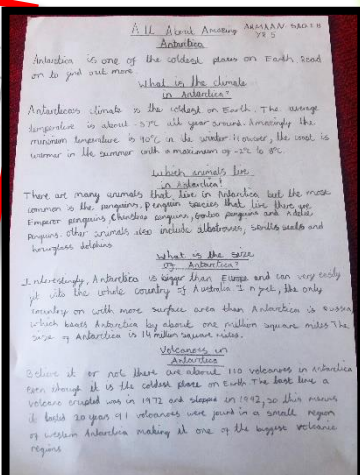 All About Amazing
Antarctica
YR 5
Antarctica is one of the coldest places on Earth. Read
on to find out more.
What is the climate
in Antarctica?
Antarcticas climate is the coldest on Earth. The average
temperature is about -57°C all year around. Amazingly the
minimum temperature is 90°C in the winter. However, the coast is
warmer in the summer with a maximum of -2°C to 8°C.
Which animals live
in Antarctica?
There are many animals that live in Antarctica but the most
common is the penguins, penguin species that live there are
Emperor penguins, Chinstrap penguins, Gentoo penguins and Adelie
penguins. Other animals also include albatrosses, seals and
hourglass dolphins
What is the size
of Antarctica?
Interestingly, Antarctica is bigger than Europe and can very easily
fit the whole country of Australia. In fact, the only
country with more surface area than Antarctica is russia
which beats Antarctica by about one million square miles. The
size of Antarctica is 14 million square miles.
Volcanoes in
Antarctica
Believe it or not there are about 110 volcanoes in Antarctica
Even though it is the coldest place on Earth. The last time a
volcano erupted was in 1972 and stopped in 1992, so this means
it lasted 20 years. 91 volcanoes were found in a small region
of western Antarctica making it one of the biggest volcanic
regions.